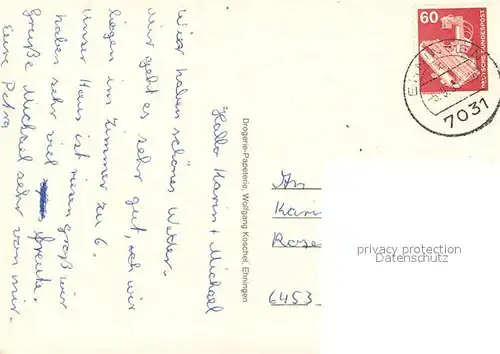 Hallo Karin + Michael
Wir haben schönes Wetter.
Mir geht es sehr gut, wir
liegen im Zimmer zu 6.
Unser Haus ist riesen groß wir
haben sehr viel Freude.
Grüße Michael sehr von mir.
Eure Petra
Drogerie-Papeterie, Wolfgang Koschel, Ehningen
60
DEUTSCHE BUNDESPOST
7031
An
Kari
Rose
6453
privacy protection
Datenschutz